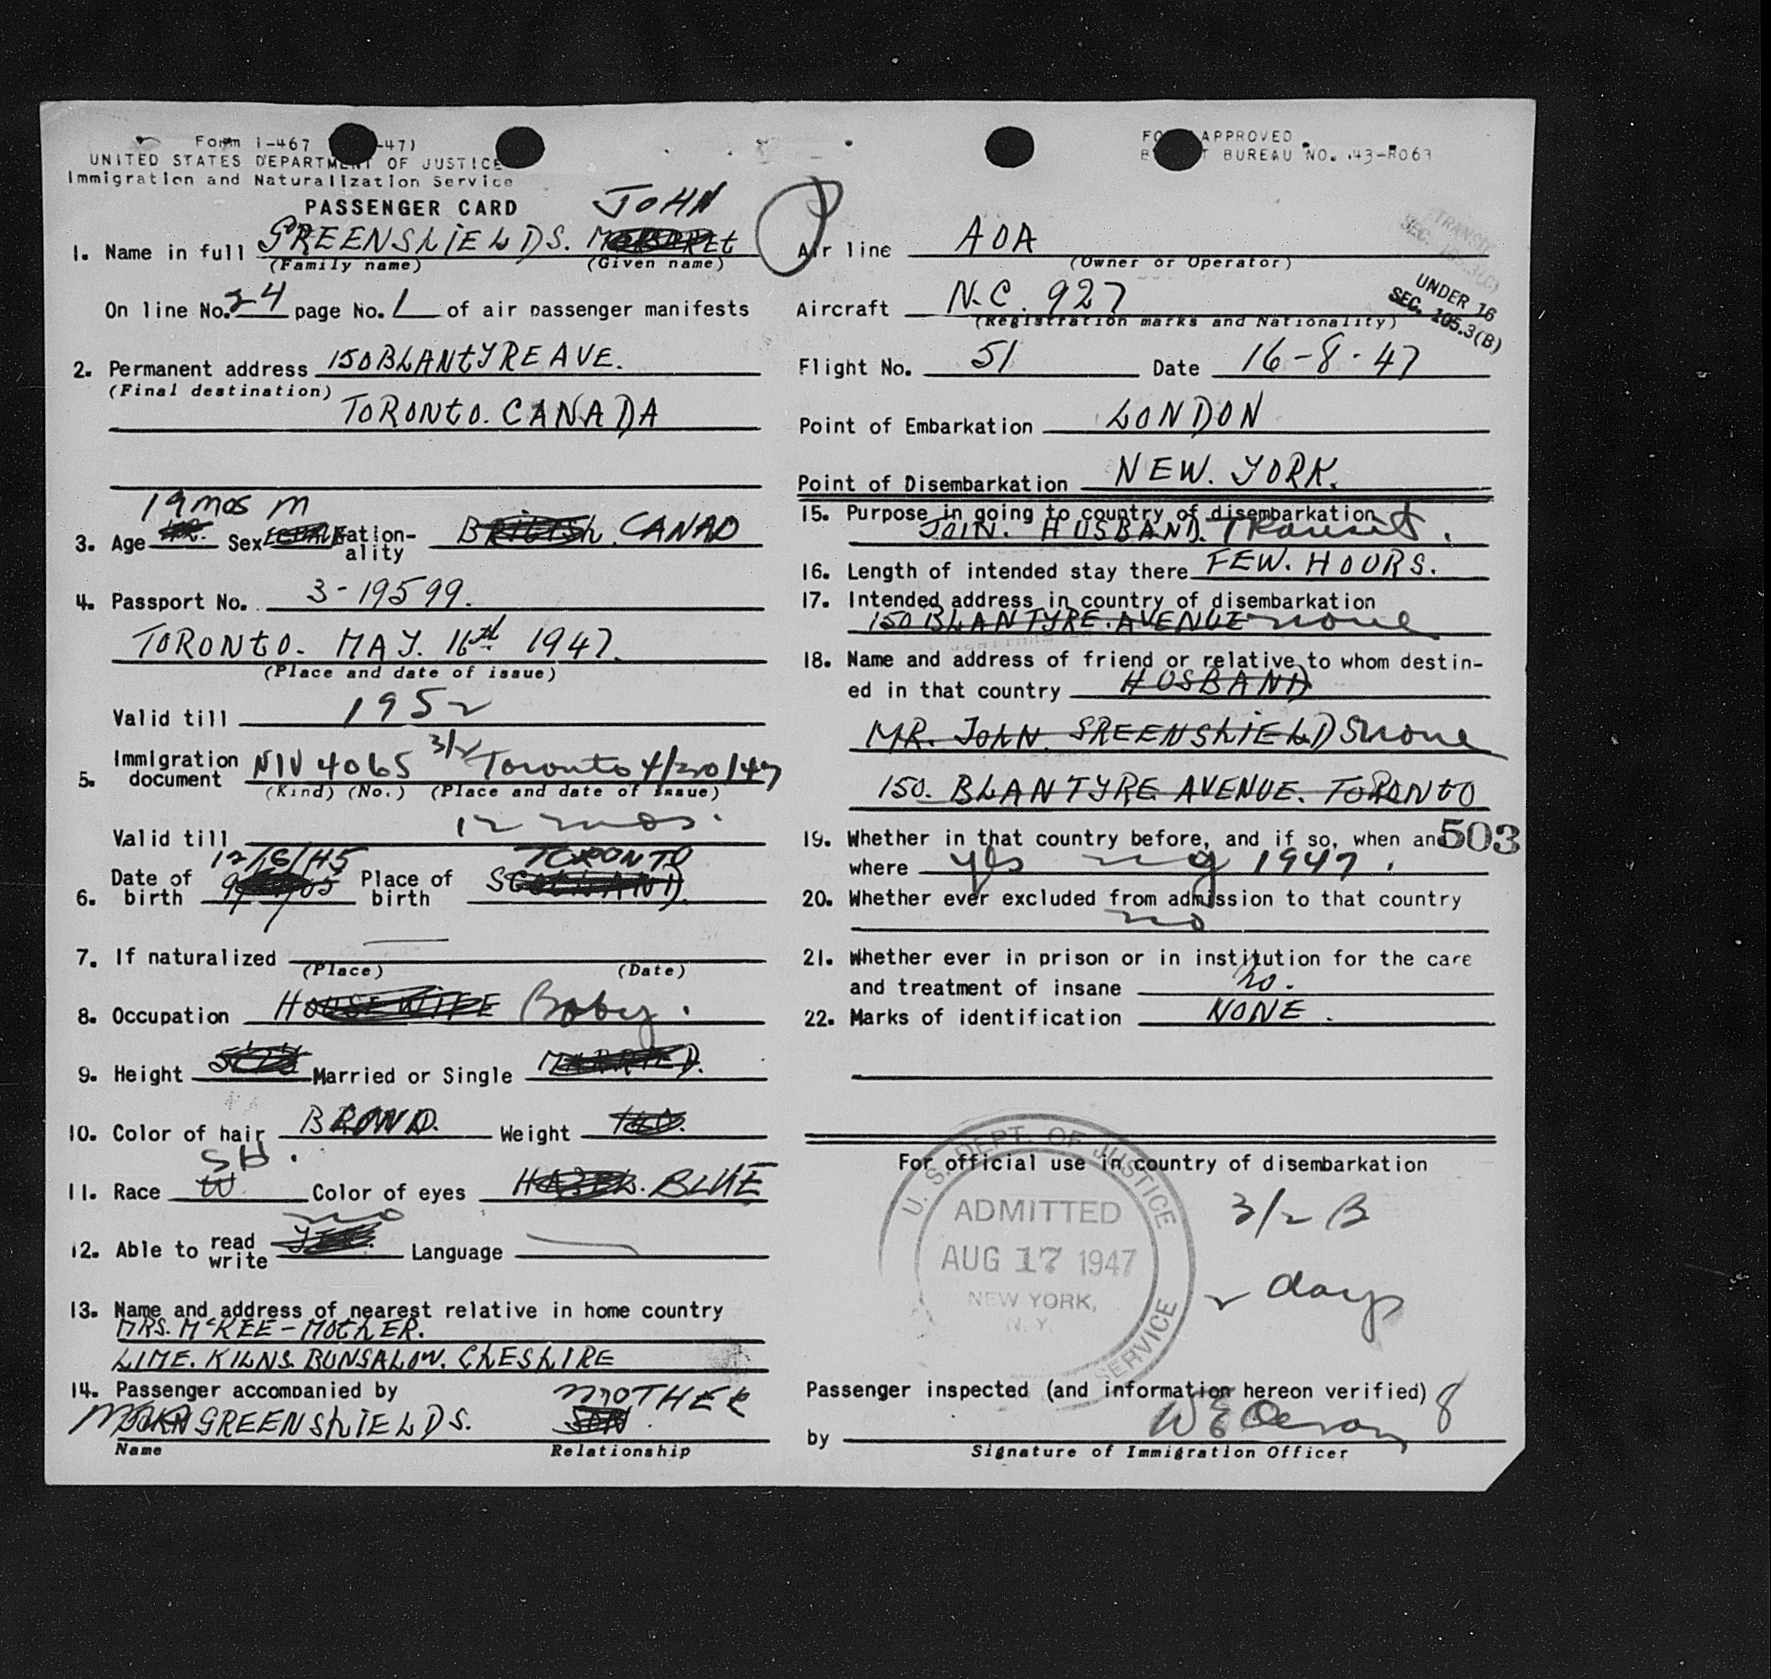 Form I-467 -47)
UNITED STATES DEPARTMENT OF JUSTICE
Immigration and Naturalization Service
PASSENGER CARD
JOHN
1. Name in full GREENSHIELDS. MARGARET
(Family name) (Given name)
On line No. 24 page No. 1 of air passenger manifests
2. Permanent address 150 BLANTYRE AVE.
(Final destination)
TORONTO. CANADA
19 mos M
3. Age YR. Sex FEMALE Nation-ality BRITISH. CANAD
4. Passport No. 3-19599.
TORONTO. MAY. 16th 1947.
(Place and date of issue)
Valid till 1952
5. Immigration document NIV 4065 3/2 Toronto 4/30/47
(Kind) (No.) (Place and date of issue)
Valid till 12 mos.
12/ /45 TORONTO
6. Date of birth 9/ /05 Place of birth SCOTLAND.
7. If naturalized —
(Place) (Date)
8. Occupation HOUSEWIFE Baby.
9. Height Married or Single MARRIED.
10. Color of hair BROWN. Weight
11. Race W Color of eyes HAZEL. BLUE
no
12. Able to read write YES. Language —
13. Name and address of nearest relative in home country
MRS. McKEE - MOTHER.
LIME. KILNS. BUNGALOW. CHESHIRE
14. Passenger accompanied by MOTHER
JOHN GREENSHIELDS. SON.
Name Relationship
FORM APPROVED
BUDGET BUREAU NO. 43-R063
Air line AOA
(Owner or Operator)
TRANSIT
UNDER 16
SEC. 105.3(B)
Aircraft N.C. 927
(Registration marks and Nationality)
Flight No. 51 Date 16-8-47
Point of Embarkation LONDON
Point of Disembarkation NEW. YORK.
15. Purpose in going to country of disembarkation
JOIN. HUSBAND. Transit.
16. Length of intended stay there FEW. HOURS.
17. Intended address in country of disembarkation
150 BLANTYRE. AVENUE none
18. Name and address of friend or relative to whom destin-
ed in that country HUSBAND
MR. JOHN. GREENSHIELDS none
150. BLANTYRE AVENUE. TORONTO
19. Whether in that country before, and if so, when and 503
where yes 1947.
20. Whether ever excluded from admission to that country
no
21. Whether ever in prison or in institution for the care
and treatment of insane no.
22. Marks of identification NONE.
For official use in country of disembarkation
U. S. DEPT. OF JUSTICE
ADMITTED
AUG 17 1947
NEW YORK,
N. Y.
SERVICE
3/2 B
2 days
Passenger inspected (and information hereon verified) 8
by
Signature of Immigration Officer